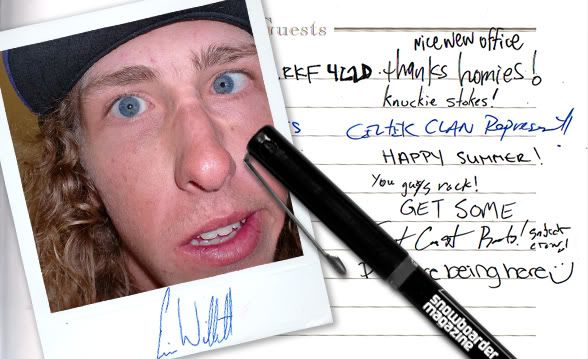 Guests
nice new office
thanks homies!
knuckie stokes!
CELTEK CLAN Represent!!
HAPPY SUMMER!
You guys rock!
GET SOME
being here
snowboarder
magazine